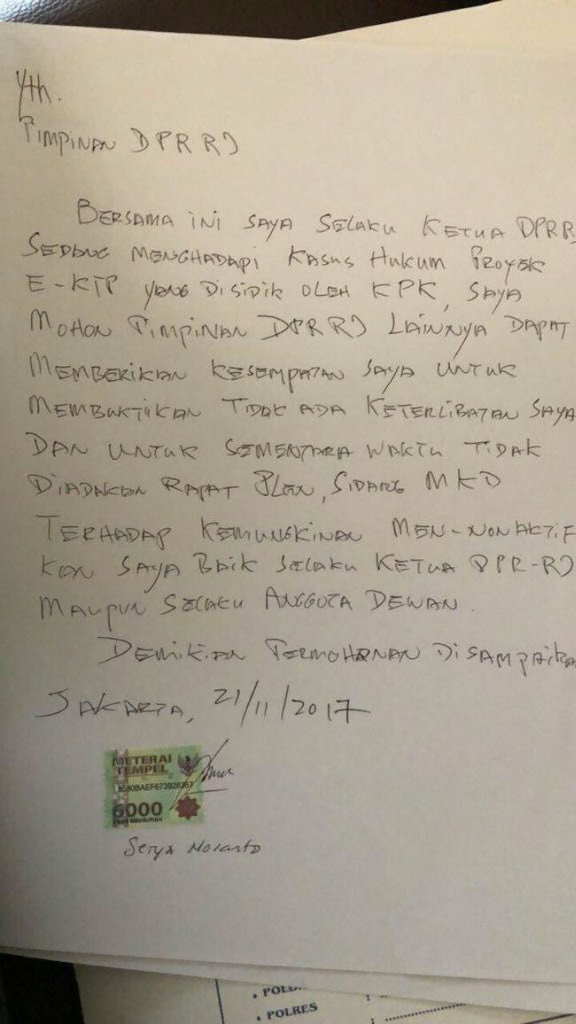 Yth.
Pimpinan DPR RI
Bersama ini saya selaku Ketua DPRR
sedang menghadapi kasus hukum proyek
E-KTP yang disidik oleh KPK, saya
mohon Pimpinan DPR RI lainnya dapat
memberikan kesempatan saya untuk
membuktikan tidak ada keterlibatan saya
dan untuk sementara waktu tidak
diadakan rapat plen, sidang MKD
terhadap kemungkinan men-nonaktif
kan saya baik selaku Ketua DPR-RI
maupun selaku anggota dewan.
Demikian permohonan disampaika
Jakarta, 21/11/2017
METERAI
TEMPEL
6000
Setya Novanto
POLD
• POLRES :